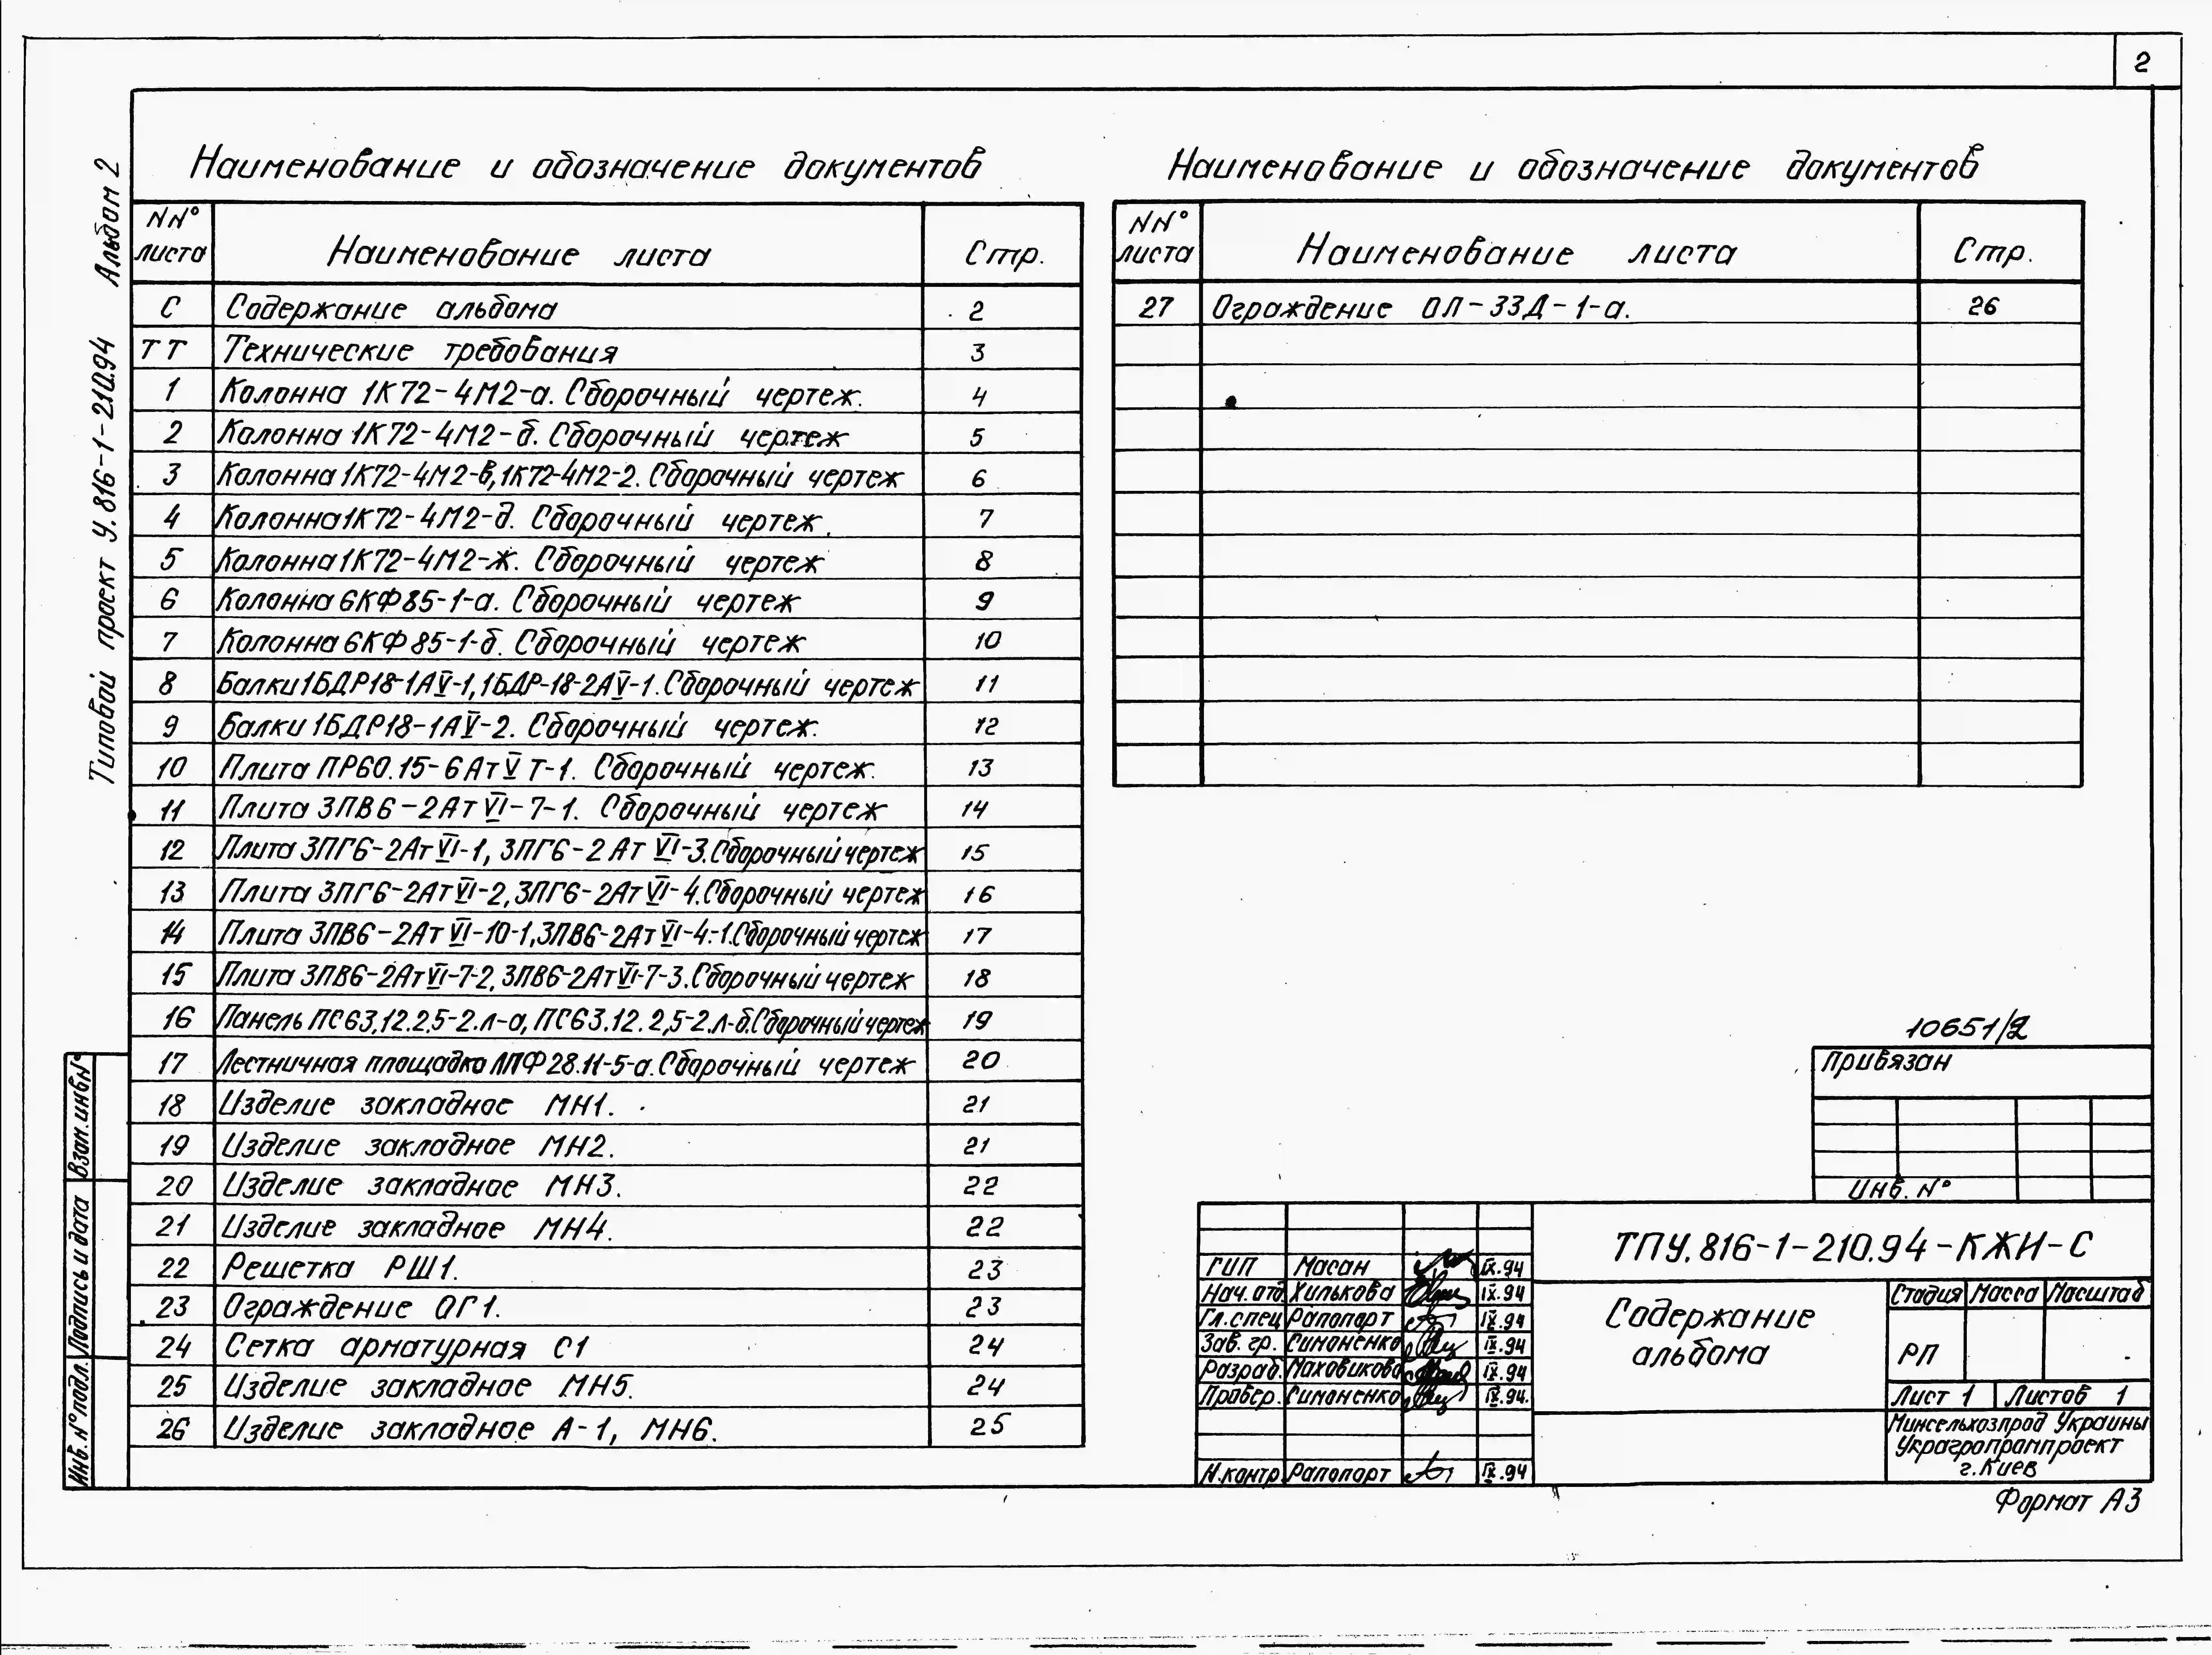 2
Типовой проект У.816-1-210.94 Альбом 2
Наименование и обозначение документов
NN° листа Наименование листа Стр.
С Содержание альбома 2
ТТ Технические требования 3
1 Колонна 1К72-4М2-а. Сборочный чертеж. 4
2 Колонна 1К72-4М2-б. Сборочный чертеж 5
3 Колонна 1К72-4М2-в, 1К72-4М2-г. Сборочный чертеж 6
4 Колонна 1К72-4М2-д. Сборочный чертеж. 7
5 Колонна 1К72-4М2-ж. Сборочный чертеж 8
6 Колонна 6КФ85-1-а. Сборочный чертеж 9
7 Колонна 6КФ85-1-б. Сборочный чертеж 10
8 Балки 1БДР18-1АV-1, 1БДР-18-2АV-1. Сборочный чертеж 11
9 Балки 1БДР18-1АV-2. Сборочный чертеж. 12
10 Плита ПР60.15-6АтVТ-1. Сборочный чертеж. 13
11 Плита 3ПВ6-2АтVI-7-1. Сборочный чертеж 14
12 Плита 3ПГ6-2АтVI-1, 3ПГ6-2АтVI-3. Сборочный чертеж 15
13 Плита 3ПГ6-2АтVI-2, 3ПГ6-2АтVI-4. Сборочный чертеж 16
14 Плита 3ПВ6-2АтVI-10-1, 3ПВ6-2АтVI-4-1. Сборочный чертеж 17
15 Плита 3ПВ6-2АтVI-7-2, 3ПВ6-2АтVI-7-3. Сборочный чертеж 18
16 Панель ПС63.12.2,5-2.л-а, ПС63.12.2,5-2.л-б. Сборочный чертеж 19
17 Лестничная площадка ЛПФ28.11-5-а. Сборочный чертеж 20
18 Изделие закладное МН1. 21
19 Изделие закладное МН2. 21
20 Изделие закладное МН3. 22
21 Изделие закладное МН4. 22
22 Решетка РШ1. 23
23 Ограждение ОГ1. 23
24 Сетка арматурная С1 24
25 Изделие закладное МН5. 24
26 Изделие закладное А-1, МН6. 25
Наименование и обозначение документов
NN° листа Наименование листа Стр.
27 Ограждение ОЛ-33Д-1-а. 26
10651/2
Привязан
Инв. N°
ТПУ.816-1-210.94-КЖИ-С
ГИП Масан IX.94
Нач. отд. Хилькова IX.94
Гл. спец Рапопорт IX.94
Зав. гр. Симоненко IX.94
Разраб. Маховикова IX.94
Провер. Симоненко IX.94.
Н.контр Рапопорт IX.94
Содержание
альбома
Стадия Масса Масштаб
РП
Лист 1 Листов 1
Минсельхозпрод Украины
Украгропромпроект
г. Киев
Формат А3
Взам. инв N°
Подпись и дата
Инв. N° подл.